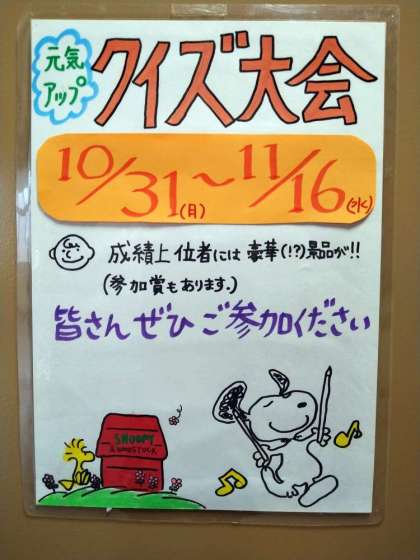 元気
アップ
クイズ大会
10/31(月)～11/16(水)
成績上位者には豪華(!?)景品が!!
(参加賞もあります。)
皆さんぜひご参加ください
SNOOPY
& WOODSTOCK